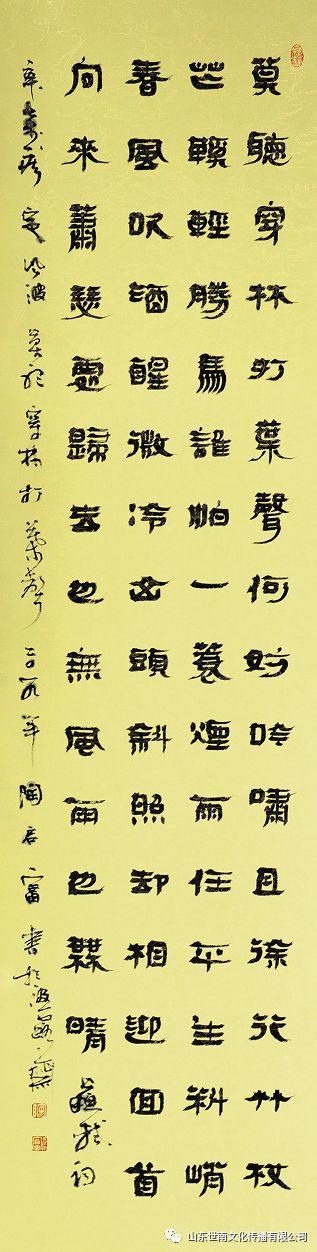 莫聽穿林打葉聲何妨吟嘯且徐行竹杖
芒鞵輕勝馬誰怕一蓑煙雨任平生料峭
春風吹酒醒微冷山頭斜照却相迎回首
向來蕭瑟處歸去也無風雨也無晴 蘇軾詞
定風波 莫聽穿林打葉聲 二〇一九年 陶君富 書於
山东世南文化传播有限公司